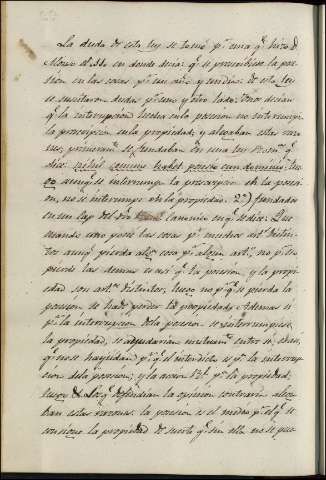 La duda de esta ley se tomó pr. una q. hizo d.
en donde decia: q. se prescribiese la pose-
sion en las cosas pr. un año y medio: de esta ley
se suscitaron dudas pr. uno y otro lado: unos decian
q. la interrupcion hecha en la posesion no interrumpe
la prescripcion en la propiedad; y alegaban estas razo-
nes; primeram. se fundaban en una ley
dice: nihil comune habet posesio cum dominio: lue-
go aunq. se interrumpa la prescripcion en la posesi-
on, no se interrumpe en la propiedad. 2º) fundados
en un cap. del dro. canonico en q. se dice: Que
cuando uno posee las cosas pr. muchos art. distin-
tos aunq. pierda alg. cosa pr. algun art. no pr. eso
pierde las demas: es asi q. la posesion, y la propie-
dad son art. distintos, luego no pr. q. se pierda la
posesion se ha de perder la propiedad. Ademas si
pr. la interrupcion de la posesion se interrumpiese
la propiedad, se ayudarian mutuam. entre si,
q. no se
de la posesion; y la accion pr. la propiedad.
Los q. defendian la opinion contraria alega-
ban estas razones: la posesion es el medio pr. el q. se
consigue la propiedad de suerte q. sin ella no se pue-